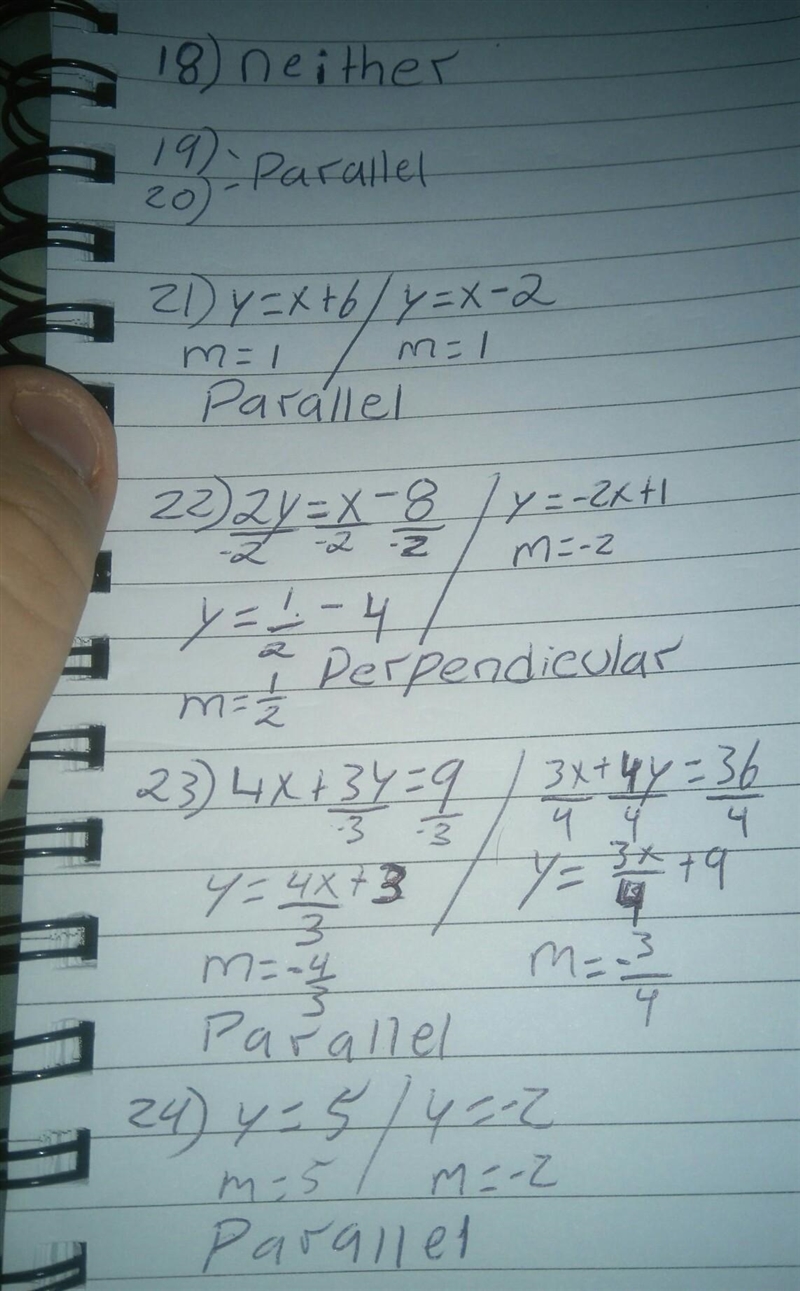 18) neither
19)
20) - Parallel
21) y=x+6 / y=x-2
m=1 m=1
Parallel
22) 2y=x-8 / y=-2x+1
-2 -2 -2 m=-2
y=1/2-4
m=1/2 Perpendicular
23) 4x+3y=9 / 3x+4y=36
-3 -3 4 4 4
y=4x/3+3 y=3x/4+9
m=-4/3 m=-3/4
Parallel
24) y=5 / y=-2
m=5 m=-2
Parallel